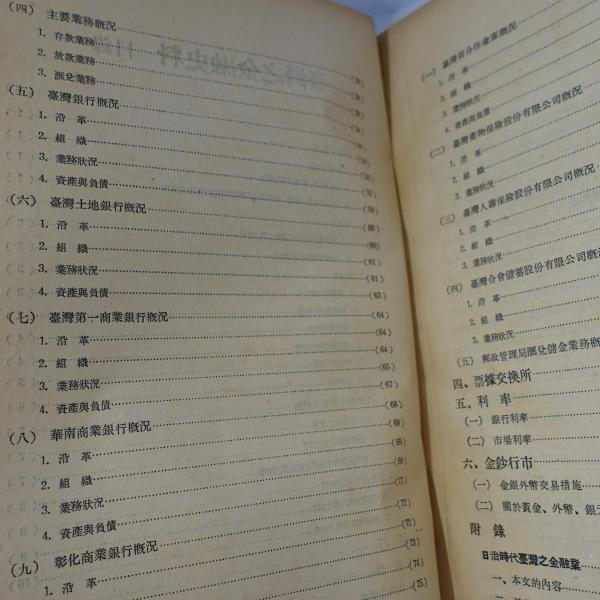 (四) 主要業務概況
1. 存款業務
2. 放款業務
3. 滙兌業務
(五) 臺灣銀行概況
1. 沿 革
2. 組 織
3. 業務狀況
4. 資產與負債
(六) 臺灣土地銀行概況
1. 沿 革 (60)
2. 組 織 (60)
3. 業務狀況 (61)
4. 資產與負債 (63)
(七) 臺灣第一商業銀行概況 (64)
1. 沿 革 (64)
2. 組 織 (65)
3. 業務狀況 (67)
4. 資產與負債 (68)
(八) 華南商業銀行概況 (68)
1. 沿 革 (69)
2. 組 織 (69)
3. 業務狀況 (71)
4. 資產與負債 (72)
(九) 彰化商業銀行概況 (73)
1. 沿 革 (74)
(75)
(一) 臺灣省合作金庫概況
1. 沿 革
2. 組 織
3. 業務狀況
4. 資產與負債
(二) 臺灣產物保險股份有限公司概況
1. 沿 革
2. 組 織
3. 業務狀況
(三) 臺灣人壽保險股份有限公司概況
1. 沿 革
2. 組 織
3. 業務狀況
(四) 臺灣合會儲蓄股份有限公司概
1. 沿 革
2. 組 織
3. 業務狀況
(五) 郵政管理局滙兌儲金業務概
四、票據交換所
五、利 率
(一) 銀行利率
(二) 市場利率
六、金鈔行市
(一) 金銀外幣交易措施
(二) 關於黃金、外幣、銀元
附 錄
日治時代臺灣之金融業
一、本文的內容